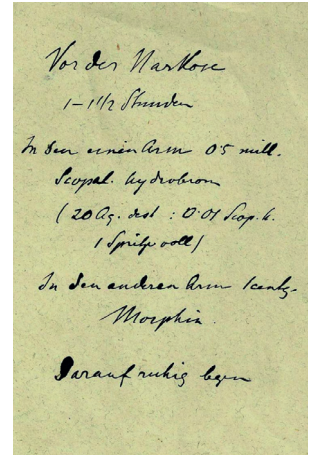 Vor der Narkose
1–1 1/2 Stunden
In den einen Arm 05 mill.
Scopol. hydrobrom
(20 Aq. dest : 0.01 Scop. h.
1 Spritze voll)
In den anderen Arm 1 centg.
Morphin.
Darauf ruhig legen